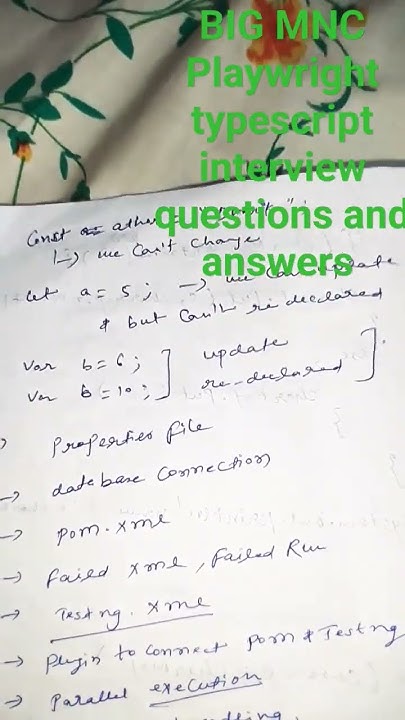 BIG MNC
Playwright
typescript
interview
questions and
answers
Const
↳ we can't change
let a = 5 ; → we can update
& but can't re declared
Var b = 6 ; ] update
Var b = 10 ; ] re-declared ]
Properties file
→ database connection
→ pom.xml
→ failed xml, failed Run
→ Testng.xml
→ plugin to connect pom & Testng
→ parallel execution